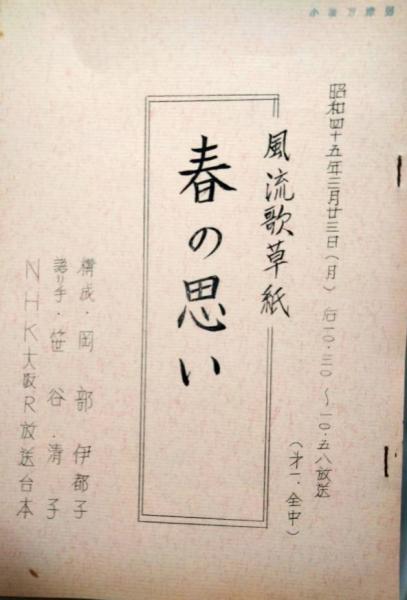 昭和四十五年三月廿三日(月) 后一〇・三〇〜一〇・五八放送
(才一、全中)
風流歌草紙
春の思い
構成・岡部伊都子
語り手・笹谷清子
NHK大阪R放送台本